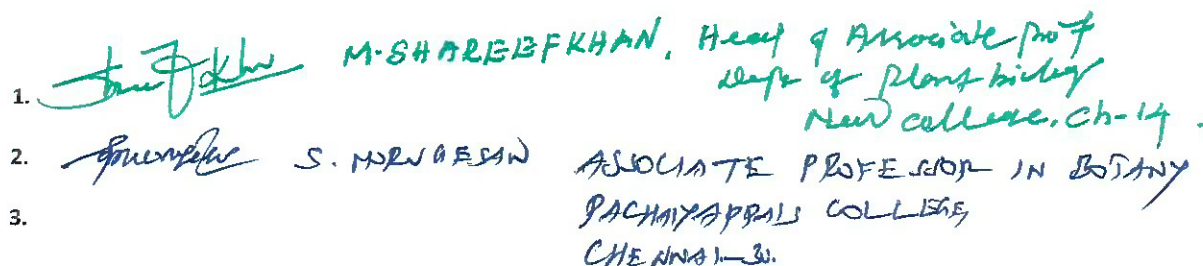 1. M. SHAREEF KHAN, Head & Associate prof
Dept of Plant biology
New college, Ch-14.
2. S. MURUGESAN ASSOCIATE PROFESSOR IN BOTANY
3. PACHAIYAPPA'S COLLEGE,
CHENNAI-30.